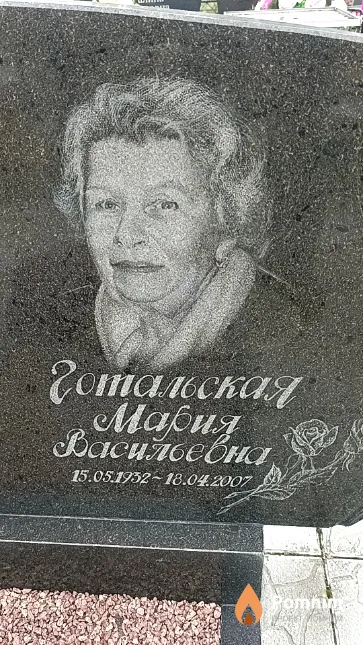 Готальская
Мария
Васильевна
15.05.1932 ~ 18.04.2007
Pomnim